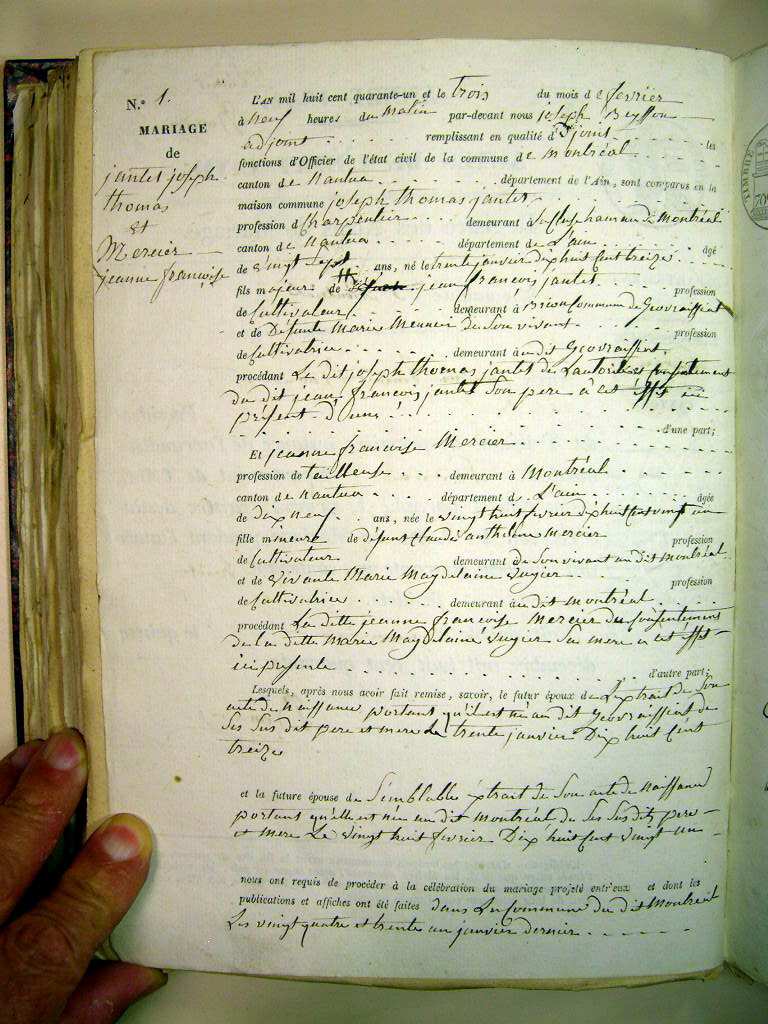 N.° 1.
MARIAGE
de
jantet joseph
thomas
et
Mercier
jeanne françoise
L'AN mil huit cent quarante-un et le trois du mois de fevrier
à neuf heures du matin par-devant nous joseph
adjoint remplissant en qualité d'adjoint les
fonctions d'Officier de l'état civil de la commune de Montréal
canton de Nantua département de l'Ain, sont comparus en la
maison commune joseph thomas jantet
profession de Charpentier demeurant à hameau de Montréal
canton de Nantua département de L'ain âgé
de vingt sept ans, né le trente janvier dix huit cent treize
fils majeur de jean françois jantet profession
de Cultivateur demeurant à Commune de Geovraissiat
et de Defunte Marie Meunier de Son vivant profession
de Cultivatrice demeurant au dit Geovraissiat
procédant Le dit joseph thomas jantet de L'autorité et Consentement
du dit jean françois jantet Son pere à cet effet ici
présent d'une
d'une part;
Et jeanne françoise Mercier
profession de tailleuse demeurant à Montréal
canton de Nantua département de L'ain âgée
de dix neuf ans, née le vingt huit fevrier dix huit cent vingt un
fille mineure de défunt Claude anthelme Mercier profession
de Cultivateur demeurant de Son vivant au dit Montréal
et de vivante Marie Magdelaine Sugier profession
de Cultivatrice demeurant au dit Montréal
procédant La ditte jeanne françoise Mercier du Consentement
de la ditte Marie Magdelaine Sugier Sa mere a cet effet
ici presente
d'autre part;
Lesquels, après nous avoir fait remise, savoir, le futur époux de L'extrait de Son
acte de Naissance portant qu'il est né au dit Geovraissiat de
Ses Sus dit pere et mere le trente janvier Dix huit Cent
treize
et la future épouse de Semblable extrait de Son acte de Naissance
portant qu'elle est née au dit Montréal de Ses Sus dits pere
et mere Le vingt huit fevrier Dix huit Cent vingt un
nous ont requis de procéder à la célébration du mariage projeté entr'eux et dont les
publications et affiches ont été faites dans La Commune du dit Montréal
Les vingt quatre et trente un janvier dernier
TIMBRE